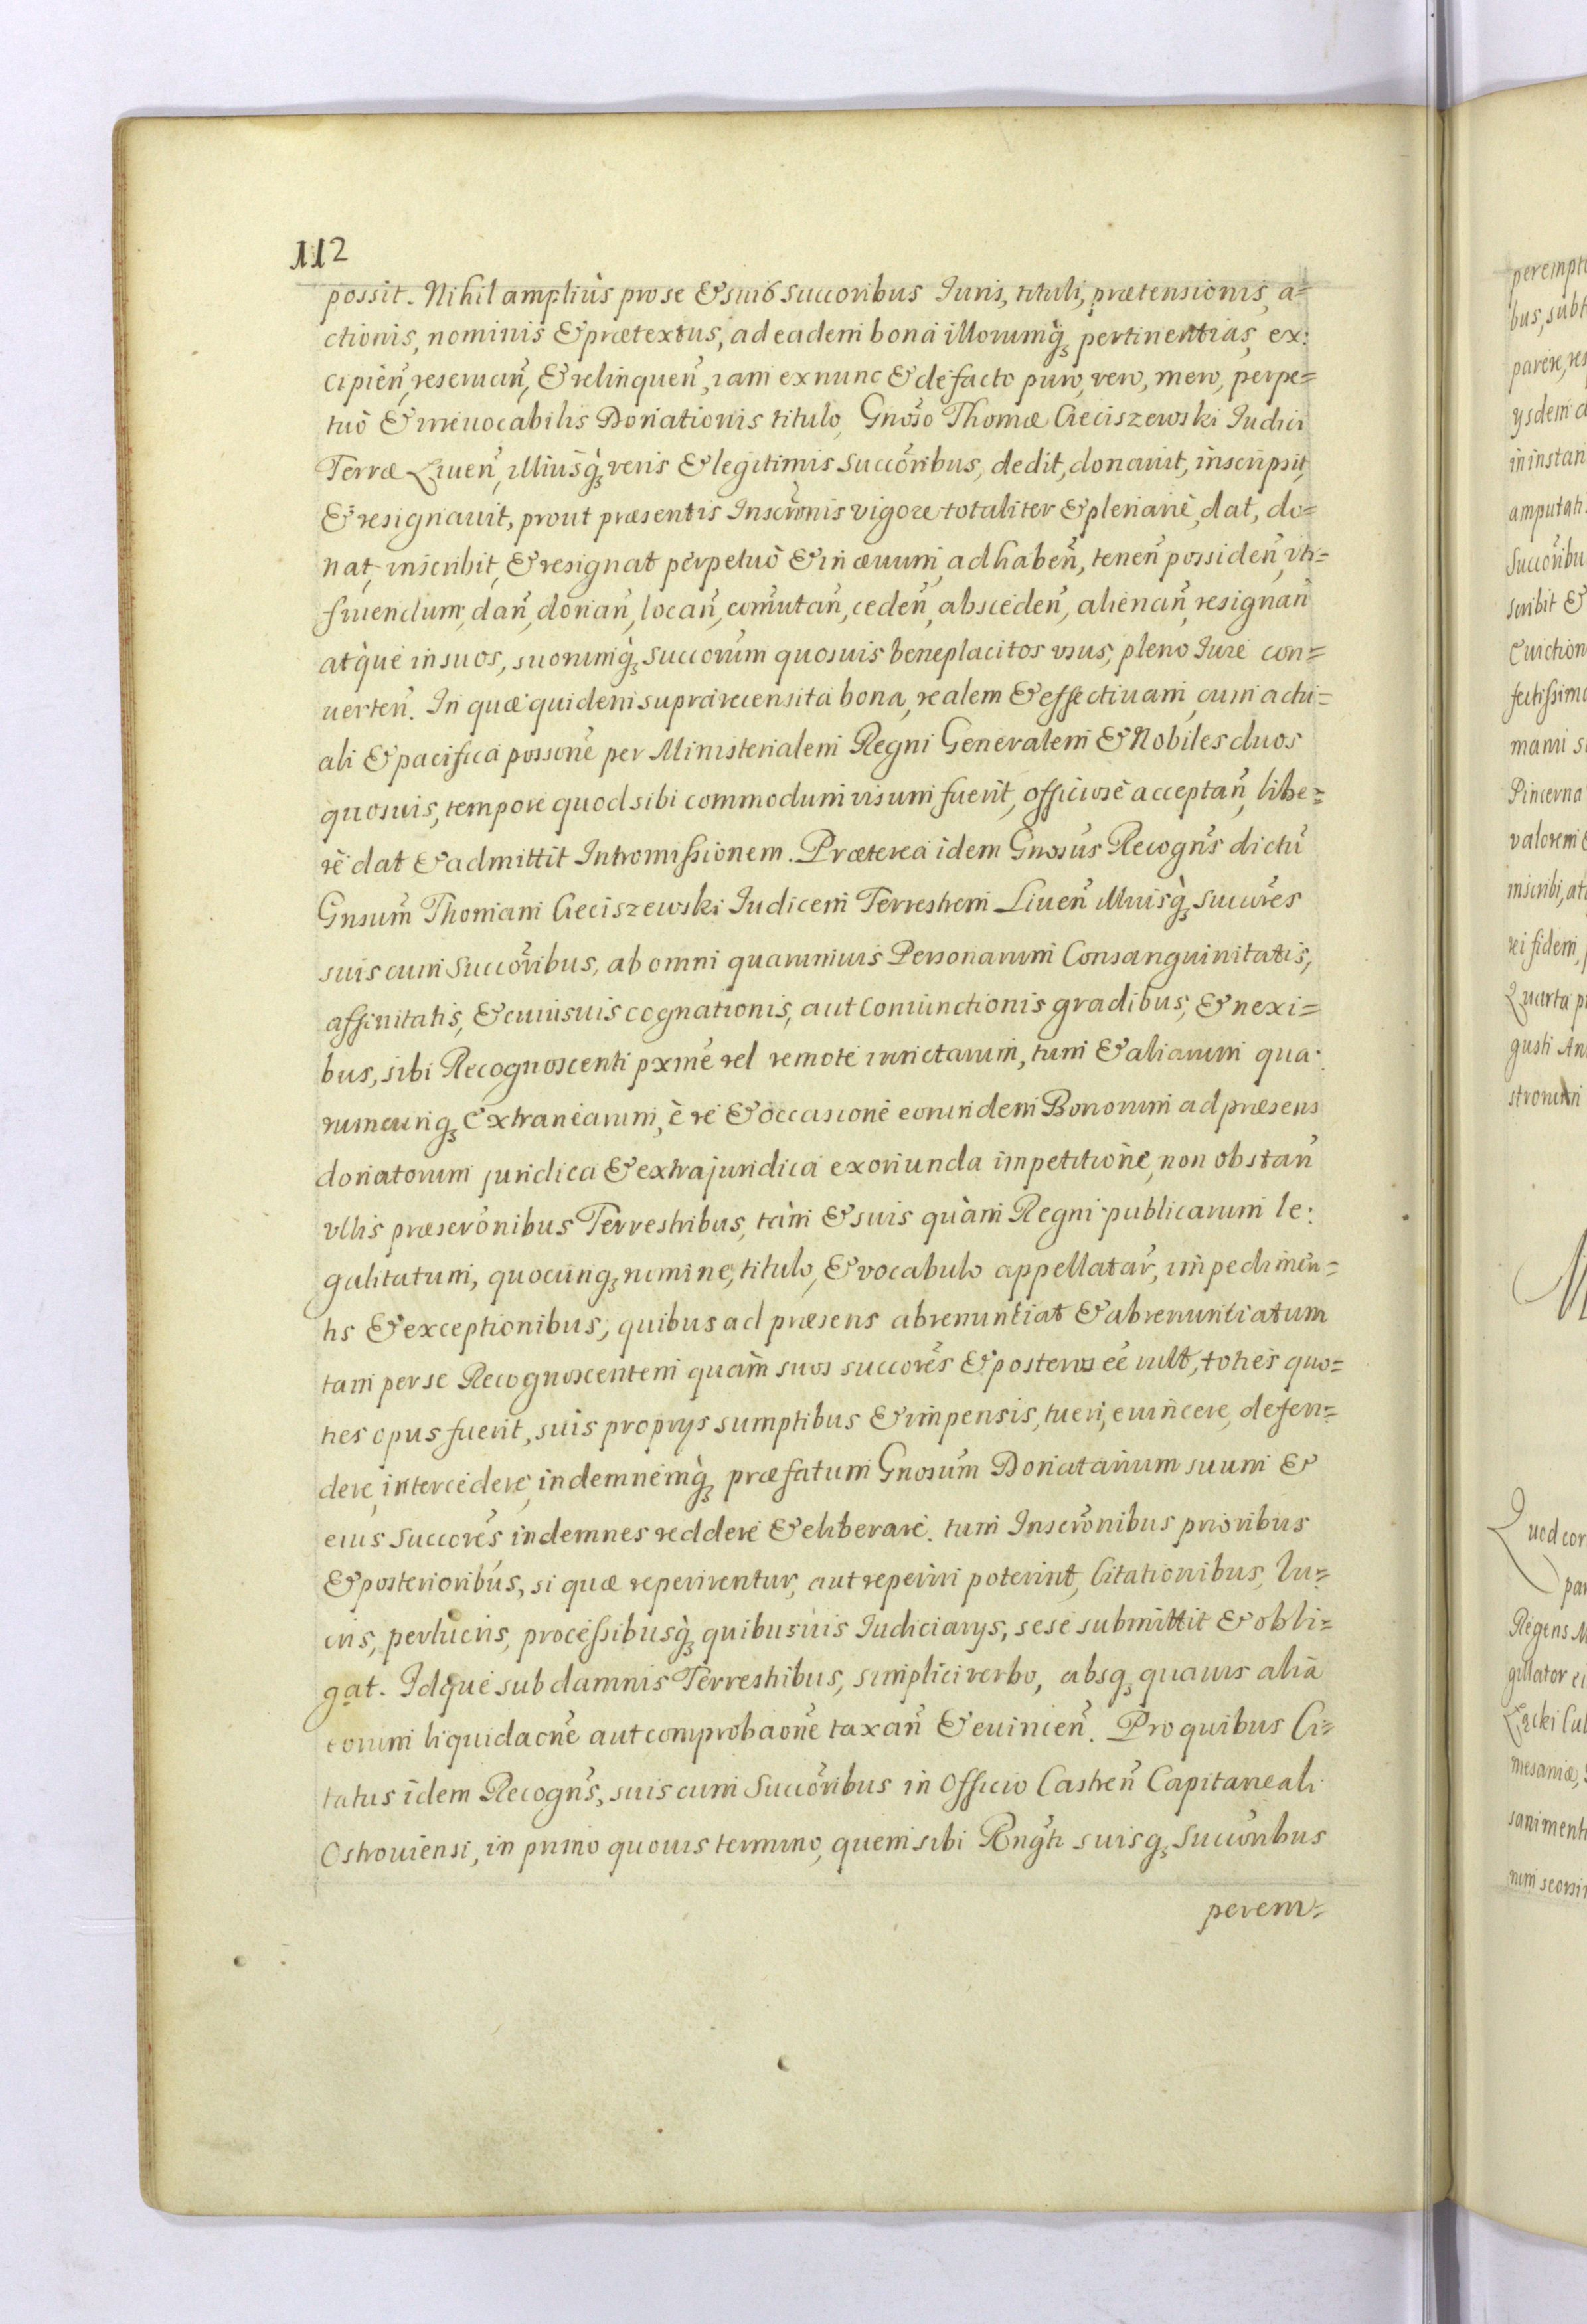 112
possit. Nihil ampliùs pro se & suis succoribus Iuris, tituli, prætensionis, a=
ctionis, nominis & prætextus, ad eadem bona illorumq̀ꝫ pertinentias, ex:
cipieñ, reseruañ, & relinqueñ, iam ex nunc & de facto puro, vero, mero, perpe=
tuò & irreuocabilis Donationis titulo, Gnõso Thomæ Cieciszewski Iudici
Terræ Liueñ, illiusq̀ꝫ veris & legitimis succõribus, dedit, donauit, inscripsit,
& resignauit, prout præsentis Inscrõnis vigore totaliter & plenariè, dat, do=
nat, inscribit, & resignat perpetuò & in æuum, ad habeñ, teneñ possideñ, vti=
fruendum, dañ, donañ, locañ, com̃utañ, cedeñ, abscedeñ, alienañ, resignañ
atq̀ue in suos, suorumq̀ꝫ succorũm quosuis beneplacitos vsus, pleno Iure con=
uerteñ. In quæ quidem supra recensita bona, realem & effectiuam, cum actu=
ali & pacifica possonẽ per Ministerialem Regni Generalem & Nobiles duos
quosuis, tempore quod sibi commodum visum fuerit, officiosè acceptañ, libe=
rè dat & admittit Intromissionem. Præterea idem Gnosũs Recogñs dictũ
Gnsũm Thomam Cieciszewski Iudicem Terrestrem Liueñ illiusq̀ꝫ succorẽs
suis cum succõribus, ab omni quarumuis Personarum Consanguinitatis,
affinitatis, & cuiusuis cognationis, aut coniunctionis gradibus, & nexi=
bus, sibi Recognoscenti pxmẽ vel remote iunctarum, tum & aliarum qua:
rumcunqꝫ extranearum, è re & occasione eorundem Bonorum ad præsens
donatorum juridica & extrajuridica exoriunda impetitione, non obstañ
vllis præscrõnibus Terrestribus, tàm & suis quàm Regni publicarum le:
galitatum, quocunqꝫ nomine, titulo, & vocabulo appellatar̃, impedimen=
tis & exceptionibus, quibus ad præsens abrenuntiat & abrenuntiatum
tam per se Recognoscentem quàm suos succorẽs & posteros eẽ vult, toties quo=
ties opus fuerit, suis proprys sumptibus & impensis, tueri, euincere, defen=
dere, intercedere, indemnemq̀ꝫ præfatum Gnosũm Donatarium suum &
eius succorẽs indemnes reddere & eliberare. tum Inscrõnibus prioribus
& posterioribus, si quæ reperirentur, aut reperiri poterint, Citationibus, lu=
cris, perlucris, processibusq̀ꝫ quibusuis Iudiciarys, sese submittit & obli=
gat. Idque sub damnis Terrestribus, simplici verbo, absqꝫ quauis alia
eorum liquidaonẽ aut comprobaonẽ taxañ & euinceñ. Pro quibus Ci=
tatus idem Recogñs, suis cum Succõribus in Officio Castreñ Capitaneali
Ostrouiensi, in primo quouis termino, quem sibi Rng̃ti suisqꝫ Succõribus
perem=
perempt
bus, subt
parere, res
ysdem a
in instan
amputati
Succõribu
scribit &
Euiction
fectissimo
mami s
Pincerna
valorem &
inscribi, at
rei fidem,
Quarta p
gusti An
strorum
Quod cor
par
Regens M
gillator ei
Łącki Cul
mesaniæ,
sani menti
num seorsi